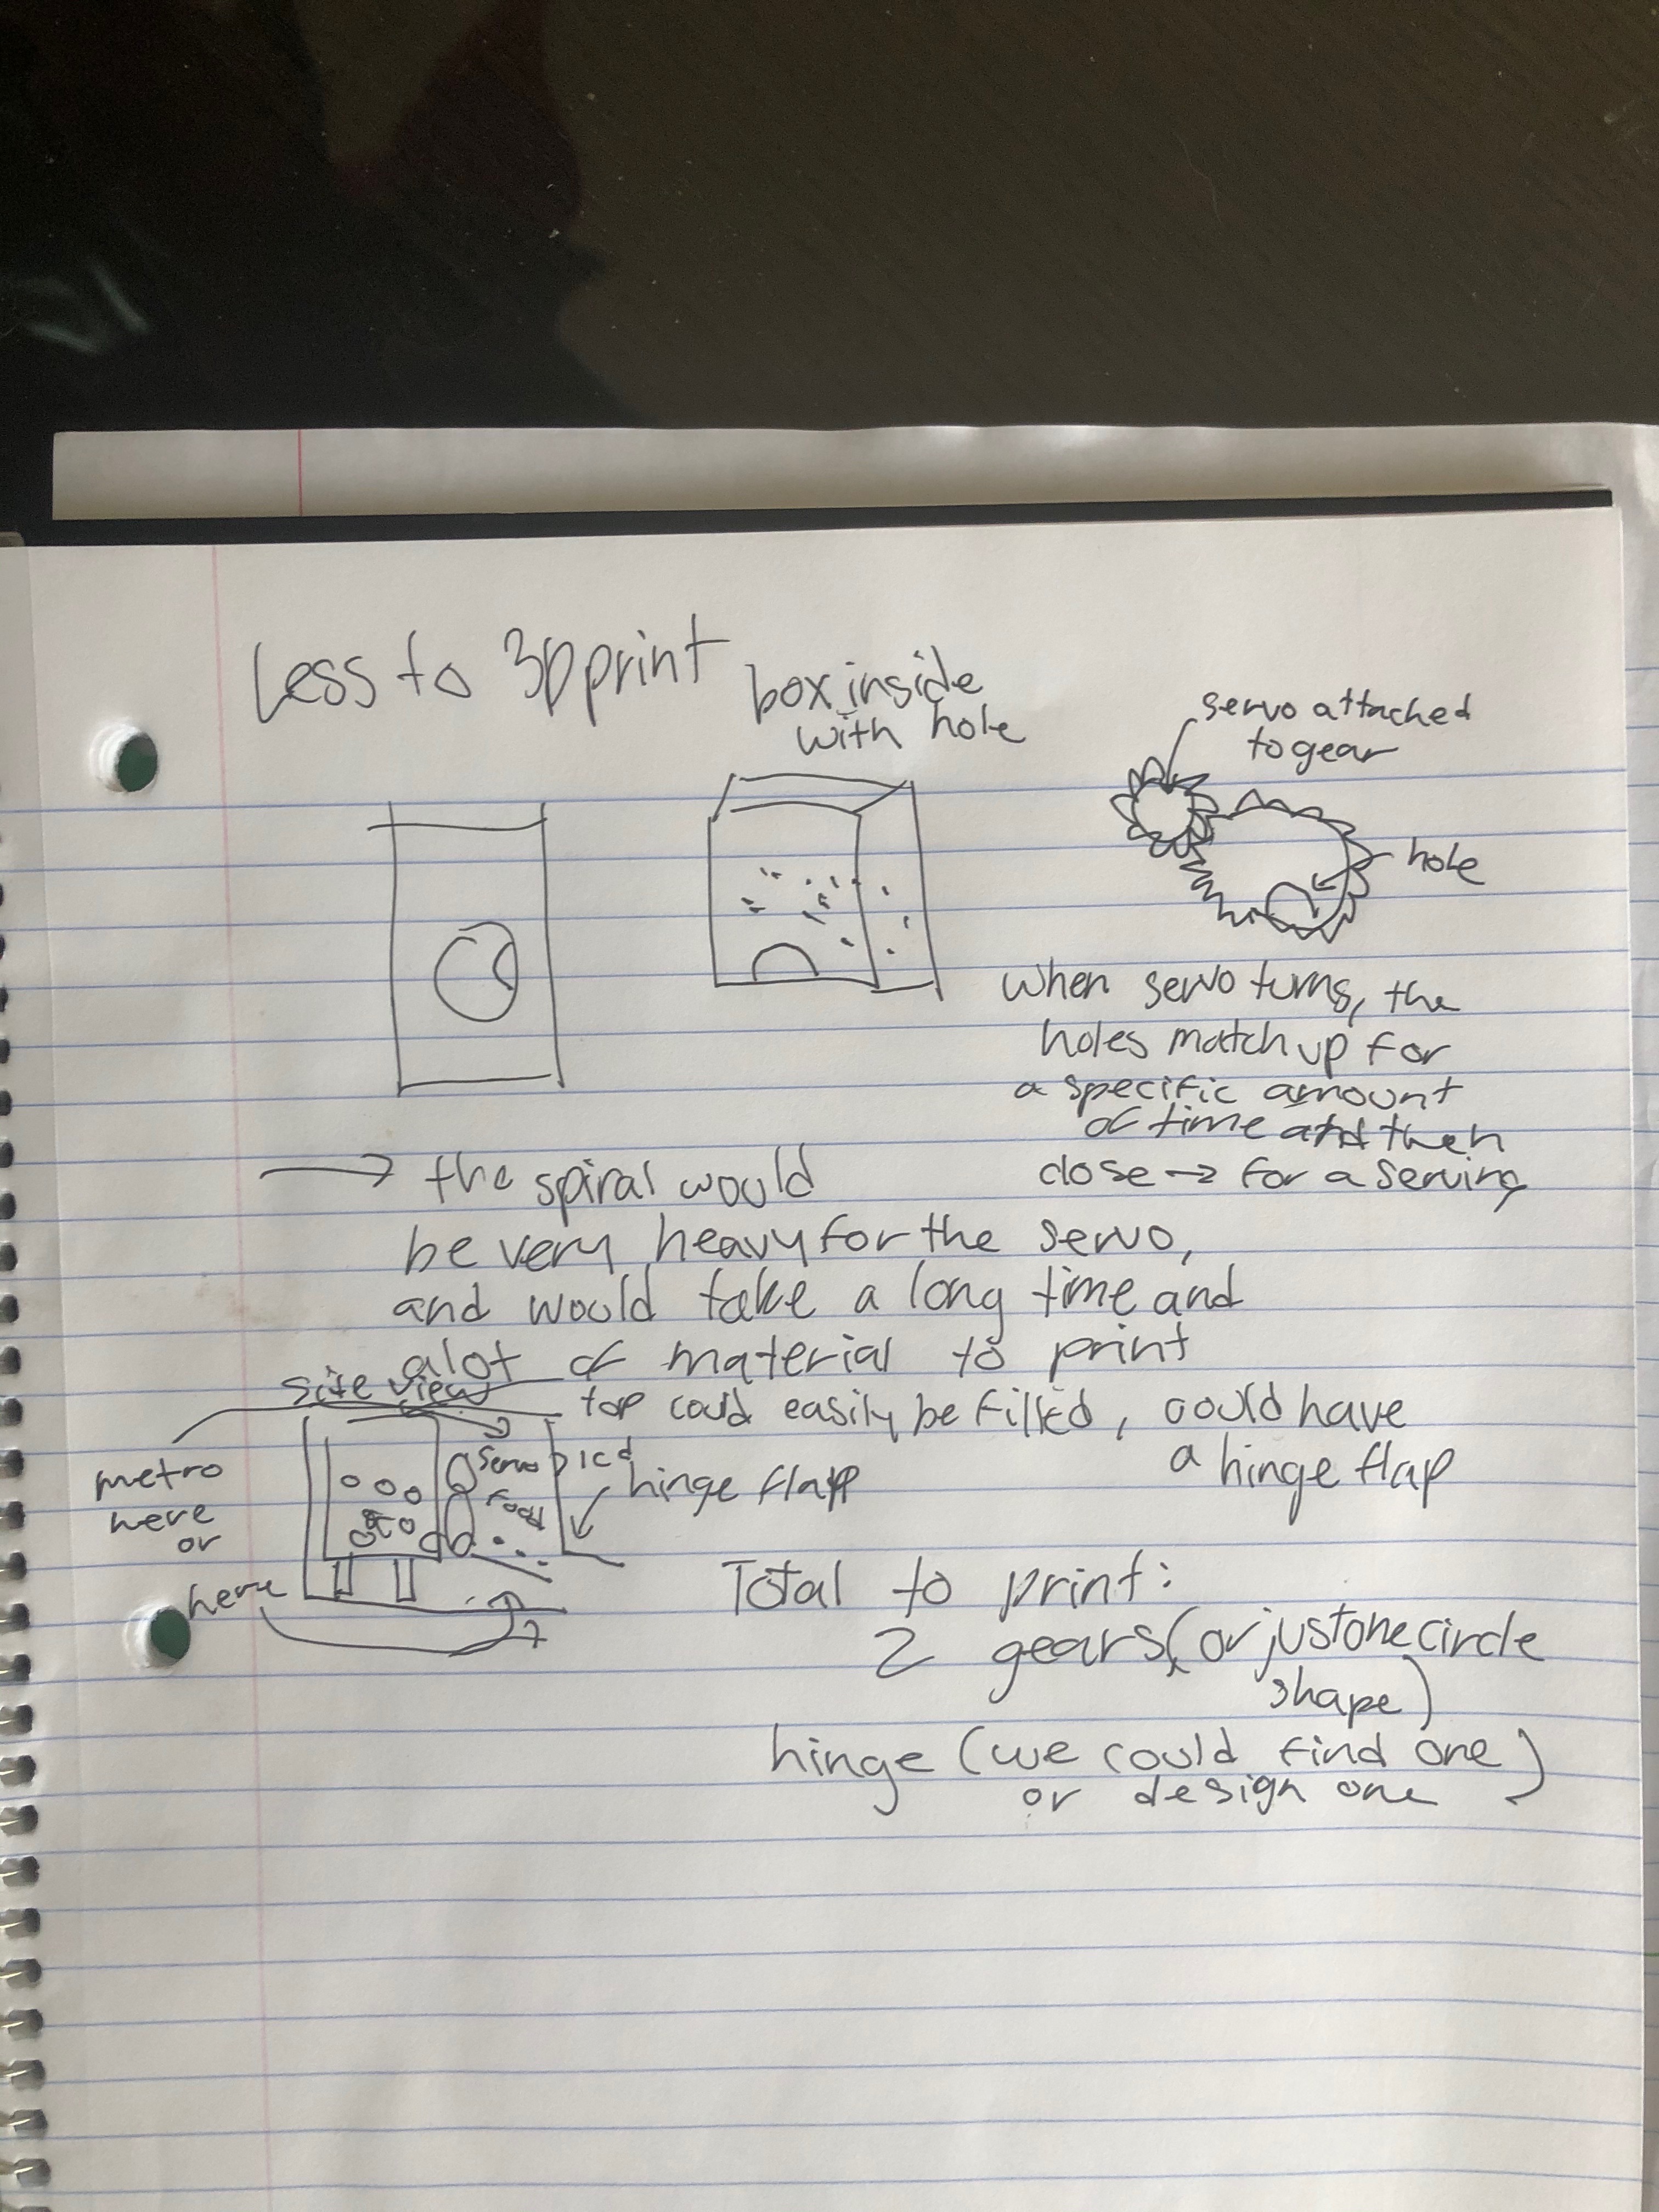 Less to 3D print
box inside
with hole
servo attached
to gear
hole
when servo turns, the
holes match up for
a specific amount
of time and then
close → for a serving
→ the spiral would
be very heavy for the servo,
and would take a long time and
alot of material to print
site view
top could easily be filled, could have
a hinge flap
metro
here
or
here
servo
lcd
food
hinge flap
Total to print:
2 gears (or just one circle
shape)
hinge (we could find one)
or design one